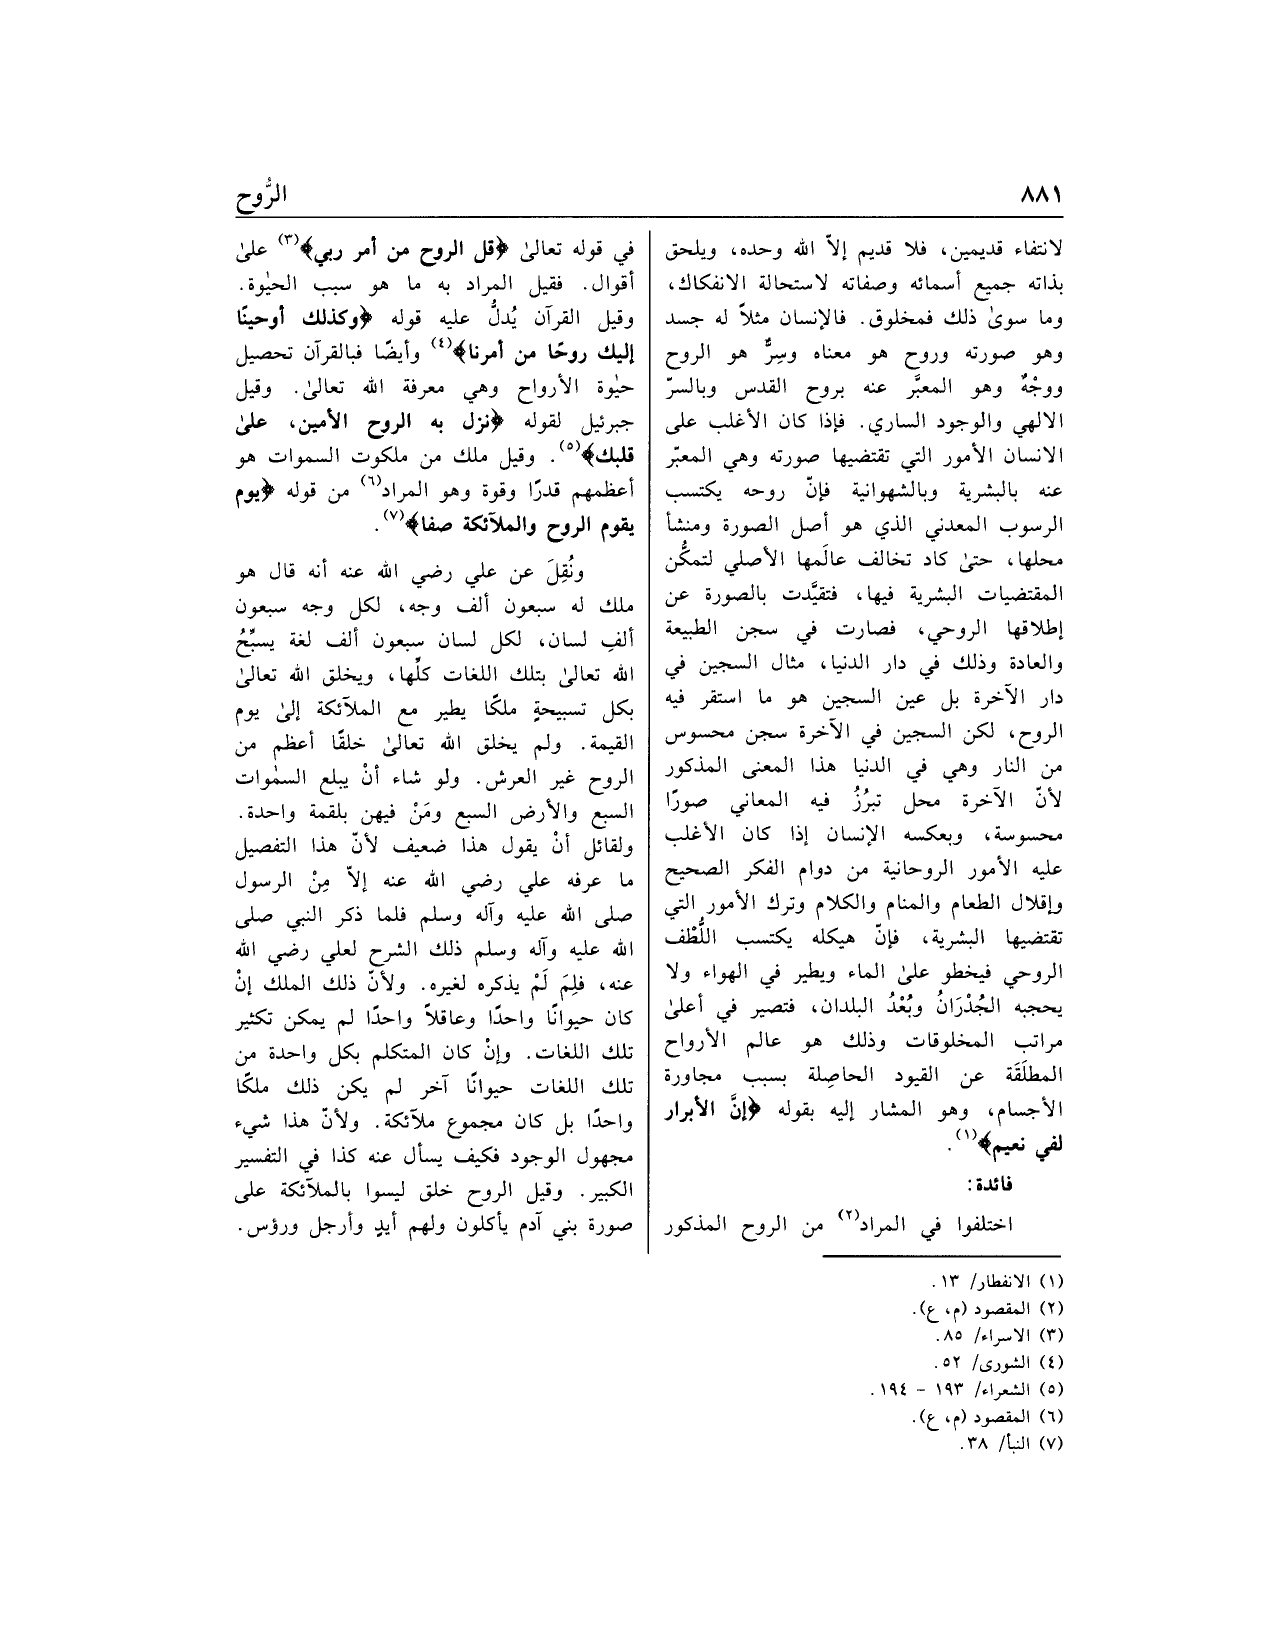 ٨٨١
الرُّوح
لانتفاء قديمين، فلا قديم إلاّ الله وحده، ويلحق
بذاته جميع أسمائه وصفاته لاستحالة الانفكاك،
وما سوىٰ ذلك فمخلوق. فالإنسان مثلاً له جسد
وهو صورته وروح هو معناه وسِرٌّ هو الروح
ووجْهٌ وهو المعبَّر عنه بروح القدس وبالسرّ
الالهي والوجود الساري. فإذا كان الأغلب على
الانسان الأمور التي تقتضيها صورته وهي المعبّر
عنه بالبشرية وبالشهوانية فإنّ روحه يكتسب
الرسوب المعدني الذي هو أصل الصورة ومنشأ
محلها، حتىٰ كاد تخالف عالَمها الأصلي لتمكُّن
المقتضيات البشرية فيها، فتقيَّدت بالصورة عن
إطلاقها الروحي، فصارت في سجن الطبيعة
والعادة وذلك في دار الدنيا، مثال السجين في
دار الآخرة بل عين السجين هو ما استقر فيه
الروح، لكن السجين في الآخرة سجن محسوس
من النار وهي في الدنيا هذا المعنى المذكور
لأنّ الآخرة محل تبرُزُ فيه المعاني صورًا
محسوسة، وبعكسه الإنسان إذا كان الأغلب
عليه الأمور الروحانية من دوام الفكر الصحيح
وإقلال الطعام والمنام والكلام وترك الأمور التي
تقتضيها البشرية، فإنّ هيكله يكتسب اللُّطْف
الروحي فيخطو علىٰ الماء ويطير في الهواء ولا
يحجبه الجُدْرَانُ وبُعْدُ البلدان، فتصير في أعلىٰ
مراتب المخلوقات وذلك هو عالم الأرواح
المطلَقَة عن القيود الحاصِلة بسبب مجاورة
الأجسام، وهو المشار إليه بقوله ﴿إنَّ الأبرار
لفي نعيم﴾(١).
فائدة:
اختلفوا في المراد(٢) من الروح المذكور
في قوله تعالىٰ ﴿قل الروح من أمر ربي﴾(٣) علىٰ
أقوال. فقيل المراد به ما هو سبب الحيٰوة.
وقيل القرآن يُدلُّ عليه قوله ﴿وكذلك أوحينًا
إليك روحًا من أمرنا﴾(٤) وأيضًا فبالقرآن تحصيل
حيٰوة الأرواح وهي معرفة الله تعالىٰ. وقيل
جبرئيل لقوله ﴿نزل به الروح الأمين، علىٰ
قلبك﴾(٥). وقيل ملك من ملكوت السموات هو
أعظمهم قدرًا وقوة وهو المراد(٦) من قوله ﴿يوم
يقوم الروح والملآئكة صفا﴾(٧).
ونُقِلَ عن علي رضي الله عنه أنه قال هو
ملك له سبعون ألف وجه، لكل وجه سبعون
ألفِ لسان، لكل لسان سبعون ألف لغة يسبِّحُ
الله تعالىٰ بتلك اللغات كلِّها، ويخلق الله تعالىٰ
بكل تسبيحةٍ ملكًا يطير مع الملآئكة إلىٰ يوم
القيمة. ولم يخلق الله تعالىٰ خلقًا أعظم من
الروح غير العرش. ولو شاء أنْ يبلع السمٰوات
السبع والأرض السبع ومَنْ فيهن بلقمة واحدة.
ولقائل أنْ يقول هذا ضعيف لأنّ هذا التفصيل
ما عرفه علي رضي الله عنه إلاّ مِنْ الرسول
صلى الله عليه وآله وسلم فلما ذكر النبي صلى
الله عليه وآله وسلم ذلك الشرح لعلي رضي الله
عنه، فلِمَ لَمْ يذكره لغيره. ولأنّ ذلك الملك إنْ
كان حيوانًا واحدًا وعاقلاً واحدًا لم يمكن تكثير
تلك اللغات. وإنْ كان المتكلم بكل واحدة من
تلك اللغات حيوانًا آخر لم يكن ذلك ملكًا
واحدًا بل كان مجموع ملآئكة. ولأنّ هذا شيء
مجهول الوجود فكيف يسأل عنه كذا في التفسير
الكبير. وقيل الروح خلق ليسوا بالملآئكة على
صورة بني آدم يأكلون ولهم أيدٍ وأرجل ورؤس.
(١) الانفطار/ ١٣.
(٢) المقصود (م، ع).
(٣) الاسراء/ ٨٥.
(٤) الشورى/ ٥٢.
(٥) الشعراء/ ١٩٣ – ١٩٤.
(٦) المقصود (م، ع).
(٧) النبأ/ ٣٨.